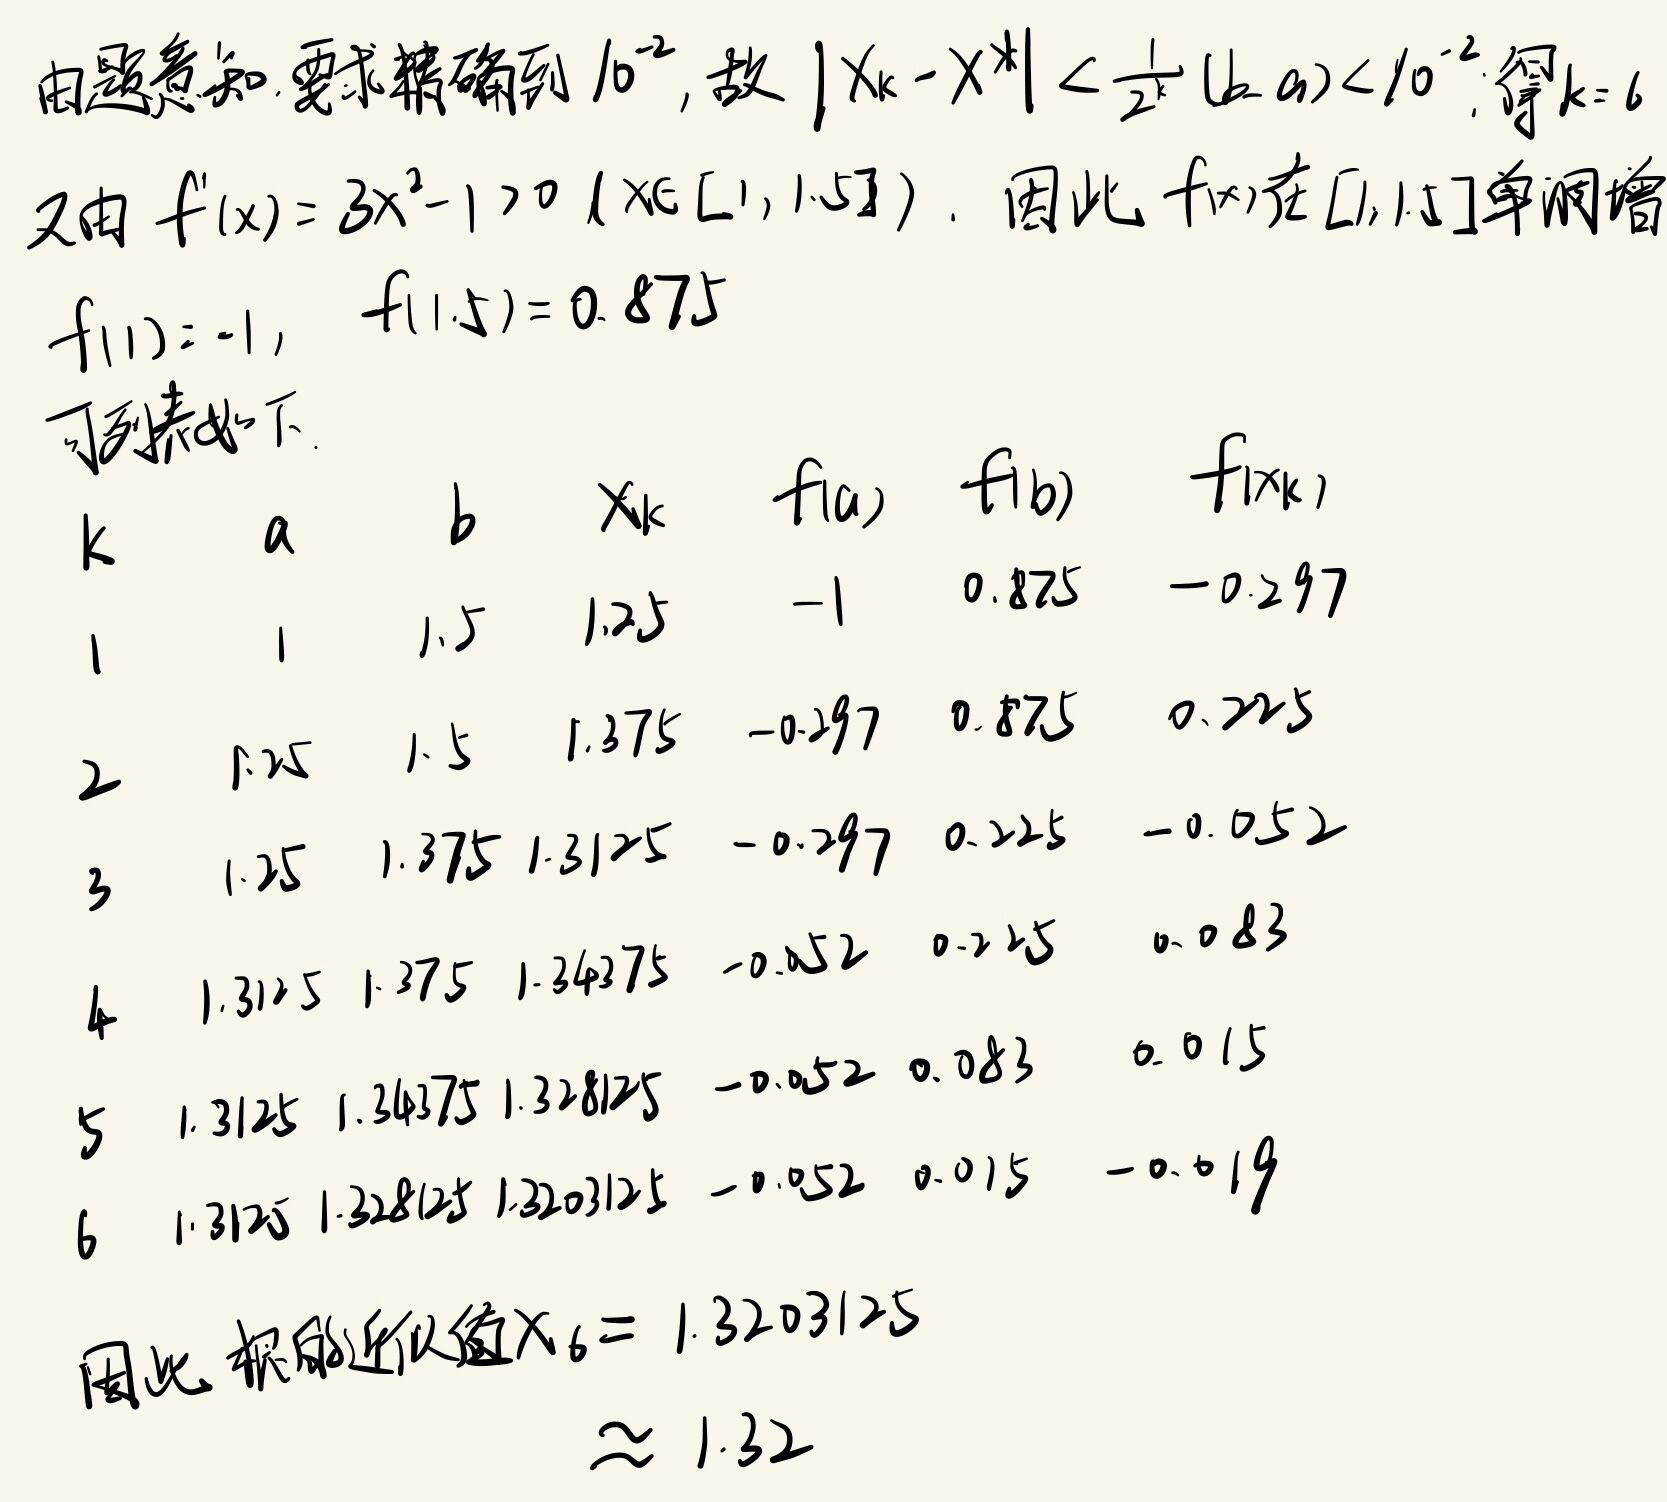 由题意知.要求精确到10^-2,故|Xk-X*|<1/2^k(b-a)<10^-2.得k=6
又由 f'(x)=3x²-1>0(x∈[1,1.5]). 因此f(x)在[1,1.5]单调增
f(1)=-1, f(1.5)=0.875
可列表如下.
k a b Xk f(a) f(b) f(xk)
1 1 1.5 1.25 -1 0.875 -0.297
2 1.25 1.5 1.375 -0.297 0.875 0.225
3 1.25 1.375 1.3125 -0.297 0.225 -0.052
4 1.3125 1.375 1.34375 -0.052 0.225 0.083
5 1.3125 1.34375 1.328125 -0.052 0.083 0.015
6 1.3125 1.328125 1.3203125 -0.052 0.015 -0.019
因此根的近似值X6=1.3203125
≈1.32